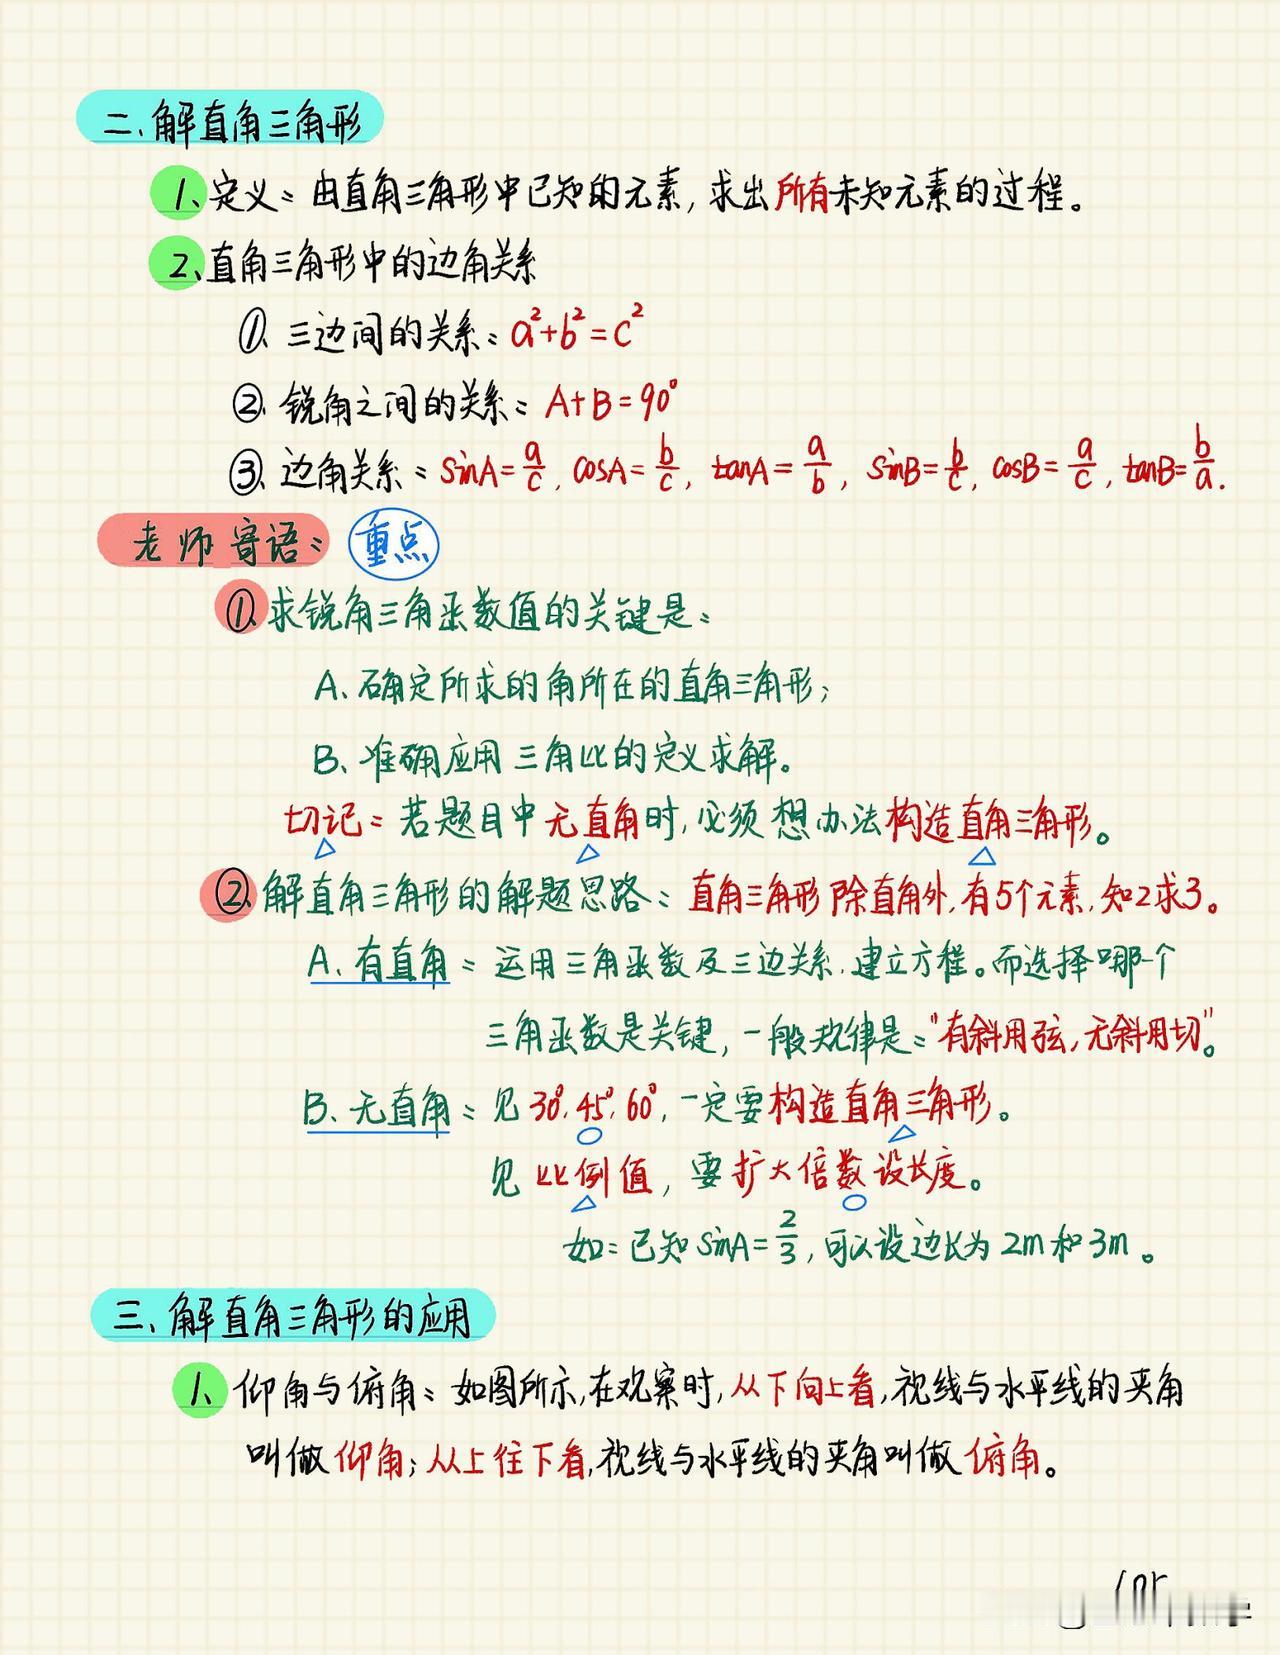 二、解直角三角形
1、定义：由直角三角形中已知的元素，求出所有未知元素的过程。
2、直角三角形中的边角关系
①、三边间的关系：a²+b²=c²
②、锐角之间的关系：A+B=90°
③、边角关系：sinA=a/c, cosA=b/c, tanA=a/b, sinB=b/c, cosB=a/c, tanB=b/a.
老师寄语：重点
①、求锐角三角函数值的关键是：
A、确定所求的角所在的直角三角形；
B、准确应用三角比的定义求解。
切记：若题目中无直角时，必须想办法构造直角三角形。
②、解直角三角形的解题思路：直角三角形除直角外，有5个元素，知2求3。
A、有直角：运用三角函数及三边关系，建立方程。而选择哪个
三角函数是关键，一般规律是："有斜用弦，无斜用切"。
B、无直角：见30°、45°、60°，一定要构造直角三角形。
见比例值，要扩大倍数设长度。
如：已知sinA=2/3，可以设边长为2m和3m。
三、解直角三角形的应用
1、仰角与俯角：如图所示，在观察时，从下向上看，视线与水平线的夹角
叫做仰角；从上往下看，视线与水平线的夹角叫做俯角。